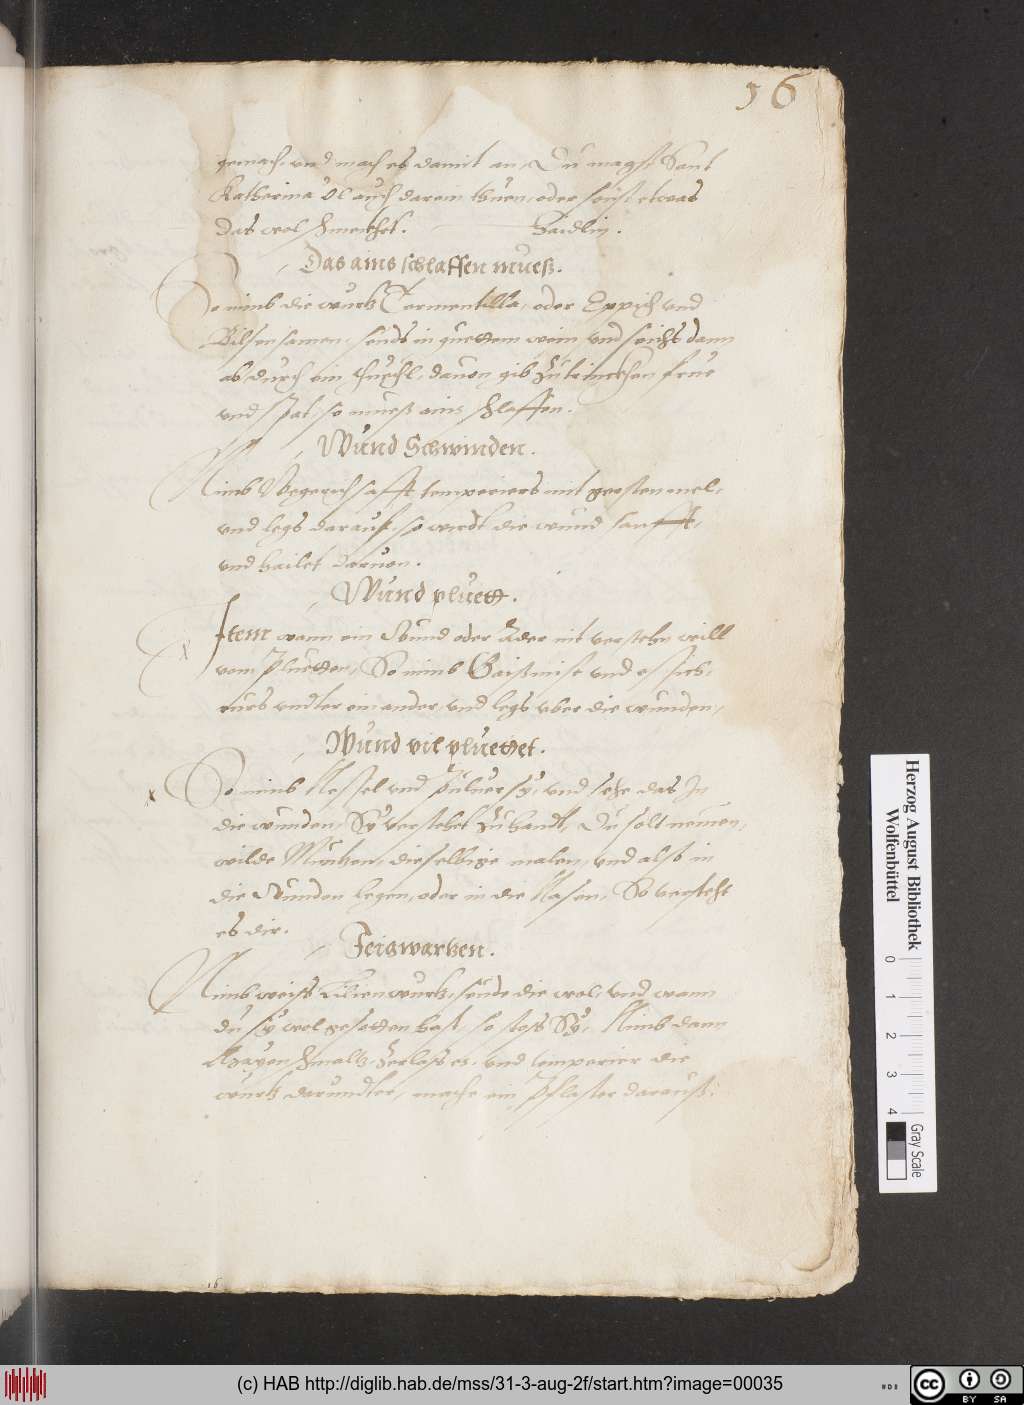 56
gemach, und mach es damit an, Du magst Sant
Katherina Öl auch darein thuen, oder sonst etwas
das wol schmeckhet. Haidlin.
Das ains schlaffen mueß.
So nimb die wurtz Tormentilla, oder Eppich und
Bilsensamen, seuds in guettem wein und seichs dann
ab durch ein thüechl, davon gib zu trinckhen frue
und spat, so mueß ains schlaffen.
Wund Schwinden.
Nimb Wegerich safft temperiers mit gersten mel,
und legs darauf, so wirdt die wund sanfft,
und hailet darvon.
Wund pluett.
Item wann ein Wund oder Ader nit verstehn will
vom pluetten, So nimb Gaißmist und essich,
rürs undter einander, und legs uber die wunden,
Wund vil pluettet.
So nimb Nessel und pulver sy, und sehe das In
die wunden, Sy verstehet zu handt, Du solt nemen,
wilde Müntzen, dieselbige malen, und also in
die Wunden legen, oder in die Nasen, So versteht
es dir.
Feigwartzen.
Nimb weiss Lilien wurtz, seude die wol, und wann
du sy wol gesotten hast, so stoss Sy, Nimb dann
Khatzen schmaltz, zerlass es, und temperier die
wurtz darundter, mache ein pflaster darauß.
16
Herzog August Bibliothek
Wolfenbüttel
0 1 2 3 4
Gray Scale
(c) HAB http://diglib.hab.de/mss/31-3-aug-2f/start.htm?image=00035
cc BY SA